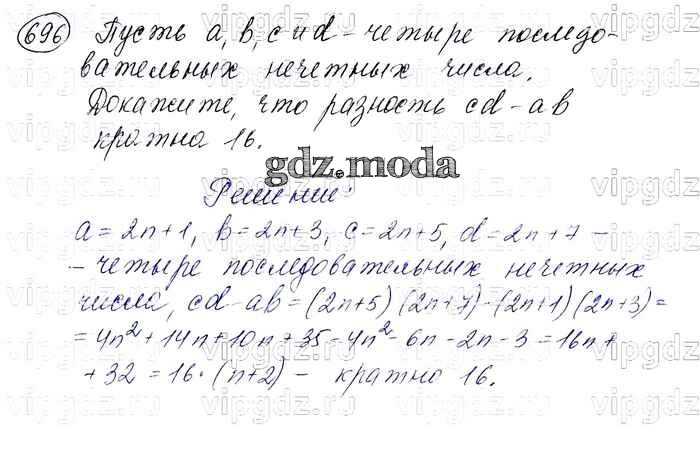 696 Пусть a, b, c и d - четыре последо-
вательных нечетных числа.
Докажите, что разность cd - ab
кратна 16.
gdz.moda
Решение:
a = 2n+1, b = 2n+3, c = 2n+5, d = 2n+7 -
- четыре последовательных нечетных
числа, cd - ab = (2n+5)(2n+7) - (2n+1)(2n+3) =
= 4n² + 14n + 10n + 35 - 4n² - 6n - 2n - 3 = 16n +
+ 32 = 16 · (n+2) - кратно 16.
vipgdz.ru